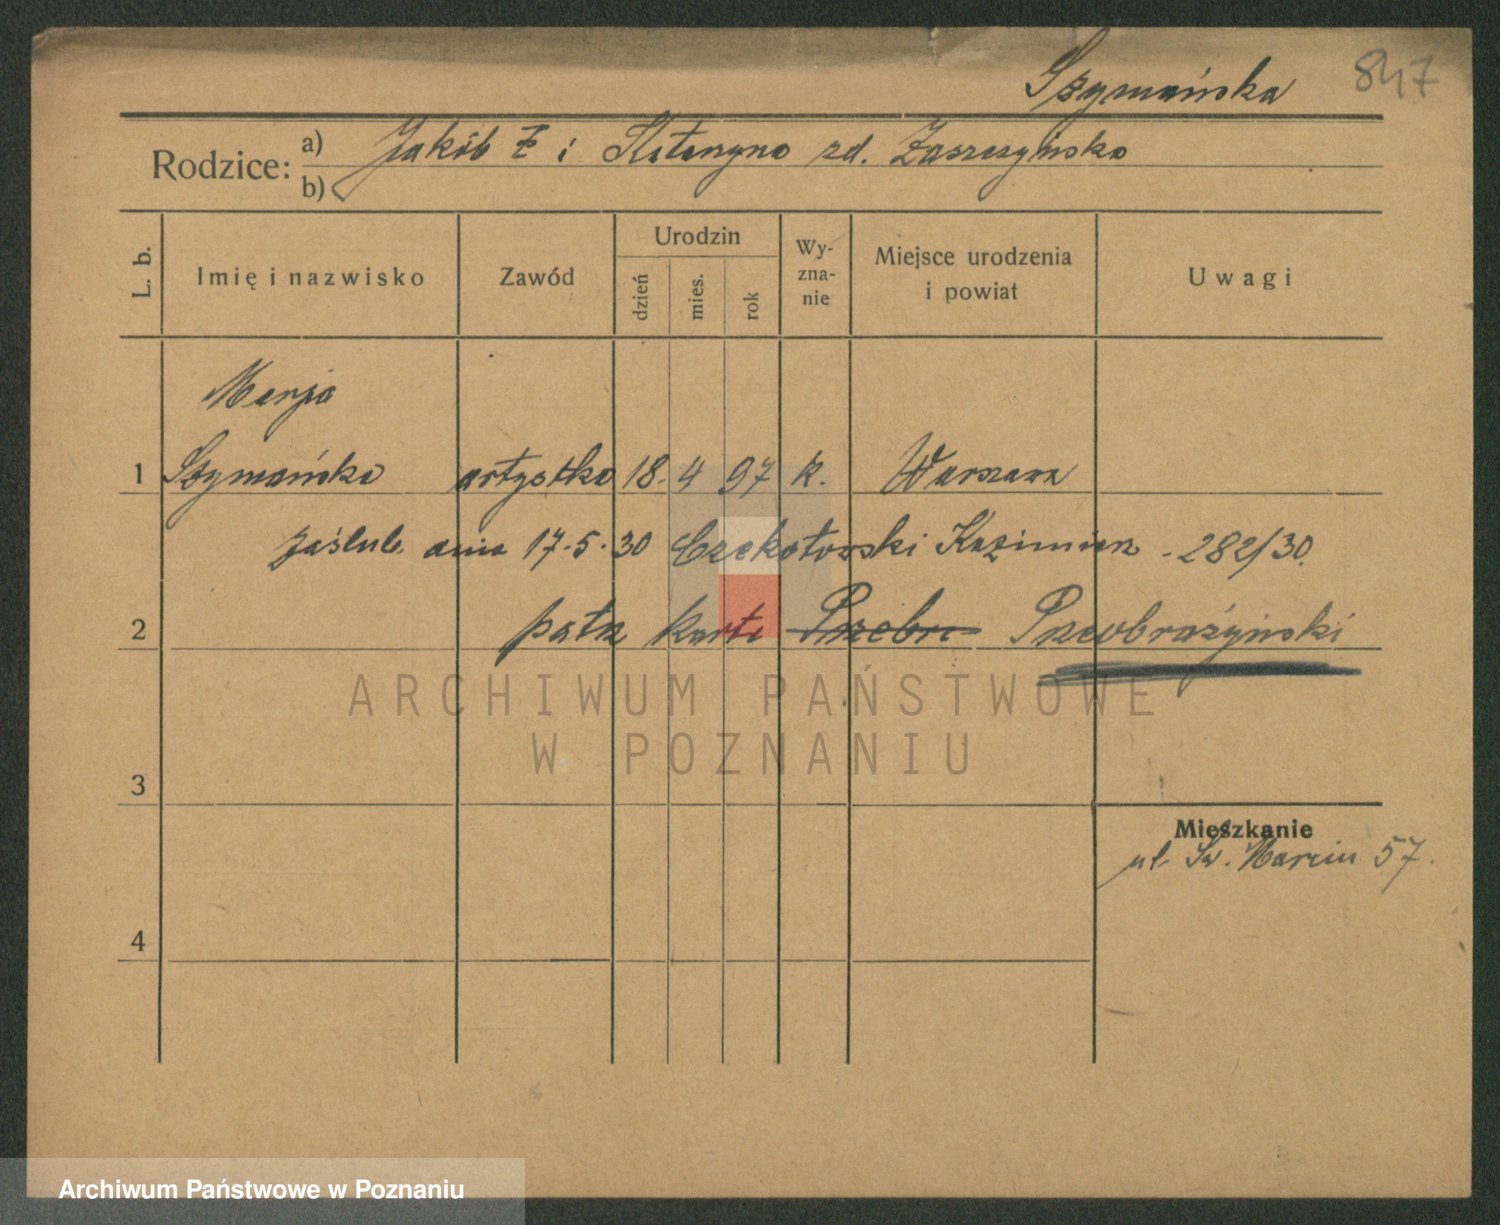 Szymańska 847
Rodzice: a) Jakób i Katarzyna zd. Zaszczyńska
b)
L. b. Imię i nazwisko Zawód Urodzin dzień mies. rok Wy-zna-nie Miejsce urodzenia i powiat Uwagi
Marja
1 Szymańska artystka 18. 4 97 k. Warszawa
zaślub. dnia 17.5.30 Czekotowski Kazimierz - 282/30.
2 patrz kartę Przebr Przeobrażyński
ARCHIWUM PAŃSTWOWE
W POZNANIU
3
Mieszkanie
ul. Św. Marcin 57.
4
Archiwum Państwowe w Poznaniu